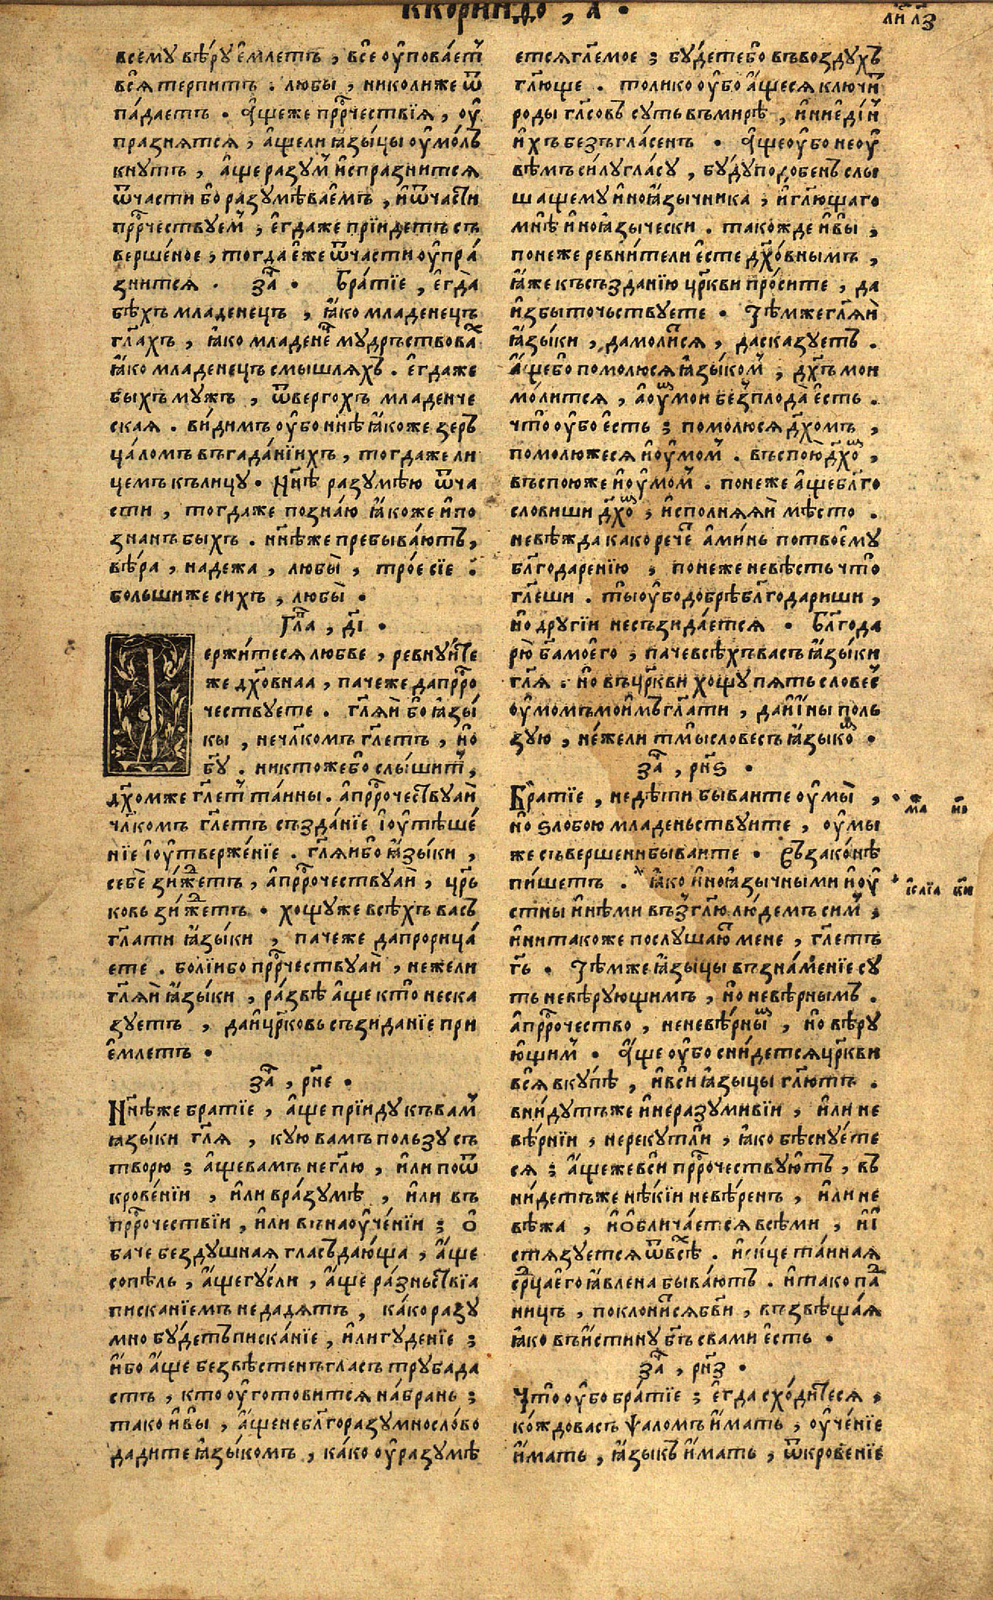 ккориндо , а҃ •
ли л҃з
всемꙋ вѣ́рꙋ е́млетъ , все ᲂу҆пова́ет
всѧ̀ терпитъ . любы̀ , николиже ѿ
па́даетъ • а҆́щеже прⷪ҇рчествїѧ , ᲂу҆
празнѧтсѧ , а҆́щели ꙗ҆зы́цы ᲂу҆мо́лъ
кнꙋтъ , а҆́ще разꙋм и҆спразнитсѧ
ѿчасти бо разꙋмѣва́емъ , и҆ѿча́сти
прⷪ҇рчествꙋем , е҆гдаже прїи́детъ съ
верше́ное , тогда̀ е҆́же ѿчасти ᲂу҆пра́
знитсѧ . заⷱ҇ • Бра́тїе , е҆гда̀
бѣ́хъ младенецъ , ꙗ҆́ко младенецъ
гл҃ахъ , ꙗ҆́ко младене мꙋ́дръствова
ꙗ҆́ко младенецъ смышлѧ́хъ . е҆гдаже
быхъ мꙋжъ , ѿвергохъ младенче
скаѧ . ви́димъ ᲂу҆́бо нн҃ѣ ꙗ҆́коже зеръ
ца́ломъ въгада́нїихъ , тогдаже ли
цемъ клицꙋ . Нн҃ѣ разꙋмѣ́ю ѿча
сти , тогдаже позна́ю ꙗ҆́коже и҆по
знанъ быхъ . нн҃ѣже пребыва́ютъ ,
вѣ́ра , надежа , любы̀ , трое сїе .
больши же сихъ , любы̀ •
Гла , д҃і •
ержи́тесѧ любве , ревнꙋ́ите
же дх҃о́внаа , паче же да прⷪ҇ро
чествꙋете . гл҃ѧи бо ꙗ҆зы́
кы , нечл҃комъ гл҃етъ , но
бг҃ꙋ . никтоже бо слы́шит ,
дх҃омже гл҃ет та́ины . а҆прⷪ҇рочествꙋаи
чл҃комъ гл҃етъ създа́нїе і҆ᲂу҆тѣше́
нїе і҆ᲂу҆твержѐнїе . гл҃ѧибо ꙗ҆зы́ки ,
себѐ зижетъ , а҆прⷪ҇рочествꙋаи , цр҃ь
ковь зи́жетъ • хощꙋже всѣ́хъ васъ
гл҃ати ꙗ҆зы́ки , паче же да пророица́
ете . болїибо прⷪ҇рчествꙋаи , нежели
гл҃ѧи ꙗ҆зы́ки , ра́звѣ а҆́ще кто̀ неска
зꙋетъ , даи҆цр҃ковь съзиданїе прі
е҆́млетъ •
заⷱ҇ , рн҃е •
Нн҃ѣже братїе , а҆́ще прїидꙋ квам
ꙗ҆зы́ки гл҃ѧ , кꙋю вамъ пользꙋ съ
творю ; а҆́щевамъ негл҃ю , и҆ли поѿ
крове́нїи , и҆ли вра́зꙋмѣ , и҆ли въ
прⷪ҇рчествїи , и҆ли внаᲂу҆че́нїи ; ѻ҆
баче бездꙋшнаѧ гласъ даю́ща , а҆́ще
сопѣ́ль , а҆́щегꙋсли , а҆́ще ра́зньствїа
писканїемъ недадѧтъ , ка́ко разꙋ
мно бꙋ́детъ писка́нїе , и҆лигꙋдеиїе ;
и҆́бо а҆́ще безвѣстенъ гласъ трꙋба да
стъ , кто ᲂу҆готовитсѧ на́брань ;
тако и҆вы̀ , а҆́щенебл҃горазꙋмно сло́во
дади́те ꙗ҆зы́комъ , ка́ко ᲂу҆разꙋмѣ
етсѧ гл҃емое ; бꙋ́дете бо въвоздꙋхъ
гл҃юще . толико ᲂу҆́бо а҆́щесѧ ключи
роды гл҃совъ сꙋть вмирѣ , и҆ниеди́н
и҆́хъ безъгла́сенъ • а҆́щеᲂу҆бо неᲂу҆
вѣмъ силꙋ гла́сꙋ , бꙋ́дꙋ подобенъ слы
шащемꙋ и҆ноꙗзы́чника , и҆ гл҃ющаго
мнѣ и҆ноꙗзы́чески . такожде и҆вы̀ ,
понеже ревни́тели е҆сте дх҃о́внымъ ,
ꙗ҆́же късъзданїю цр҃кви про́сите , да
и҆збыточьствꙋете • Тѣмже гл҃ѧи
ꙗ҆зы́ки , да моли́сѧ , да сказꙋетъ .
а҆́щебо помолюсѧ ꙗ҆зы́ком , дх҃ъ мои
мо́литсѧ , а҆ᲂу҆мои безплода̀ е҆сть .
что̀ ᲂу҆бо е҆сть ; помолюсѧ дх҃омъ ,
помолюжесѧ и҆ᲂу҆мом . въспою̀ дх҃о ,
въспоюже и҆ᲂу҆мом . понеже а҆́ще бл҃го
словиши дх҃о , и҆сполнѧѧи мѣ́сто .
невѣ́жда како рече а҆ми́нь потвоемꙋ
бл҃годаренїю , понеже невѣ́сть что̀
гл҃еши . ты̀ ᲂу҆бо до́брѣ бл҃годариши ,
но дрꙋгїи несъзида́етсѧ • Бл҃года
рю̀ ба моего , паче всѣ́хъ васъ ꙗ҆зы́ки
гл҃ѧ . но вцр҃кви хощꙋ пѧть словес
ᲂу҆момъ мои́мъ гл҃ати , даи҆и́ны поль
зꙋю , не́жели тмы̀ словесъ ꙗ҆зы́ко •
заⷱ҇ , рн҃ѕ •
Братїе , недѣ́ти быва́ите ᲂу҆мы̀ ,
но ѕлобою младеньствꙋите , ᲂу҆мы
же съвершени быва́ите • Въ зако́нѣ
пи́шетъ . ꙗ҆́ко и҆ноꙗзы́чными и҆ᲂу҆
стны и҆нѣ́ми възгл҃ю лю́демъ сим ,
и҆нитакоже послꙋшаю мене , гл҃етъ
гь҃ • Тѣмже ꙗ҆зы́цы въ зна́менїе сꙋ
ть невѣ́рꙋющимъ , но невѣ́рнымъ .
а҆прⷪ҇рочество , неневѣ́рны , но вѣ́рꙋ
ющим • а҆́ще ᲂу҆бо сни́детсѧ цр҃кви
всѧ̀ вкꙋпѣ , и҆всѝ ꙗ҆зы́цы гл҃ютъ .
вни́дꙋтъже и҆неразꙋмивїи , и҆ли не
вѣ́рнїи , нерекꙋтли , ꙗ҆́ко бѣснꙋ́ете
сѧ ; а҆́щеже всѝ прⷪ҇рочествꙋю́тъ , въ
ни́детъже нѣ́кїи невѣ́ренъ , и҆ли не
вѣжа , и҆ѡблича́етсѧ всѣми , и҆і
стѧзꙋетсѧ ѿвсѣ́ . и҆си́це та́инаѧ
ср҃ца е҆го ꙗ҆влена быва́ютъ . и҆тако па
ницъ , поклони́сѧ бг҃ви , възвѣща́ѧ
ꙗ҆́ко въи́стинꙋ бг҃ъ свами е҆́сть •
заⷱ҇ , рн҃з •
Что̀ ᲂу҆бо бра́тїе ; е҆гда сходи́тесѧ ,
ко́ждо васъ ѱало́мъ и҆́мать , ᲂу҆че́нїе
и҆́мать , ꙗ҆зы́къ и҆́мать , ѿкрове́нїе
и҆са́їа кн҃и